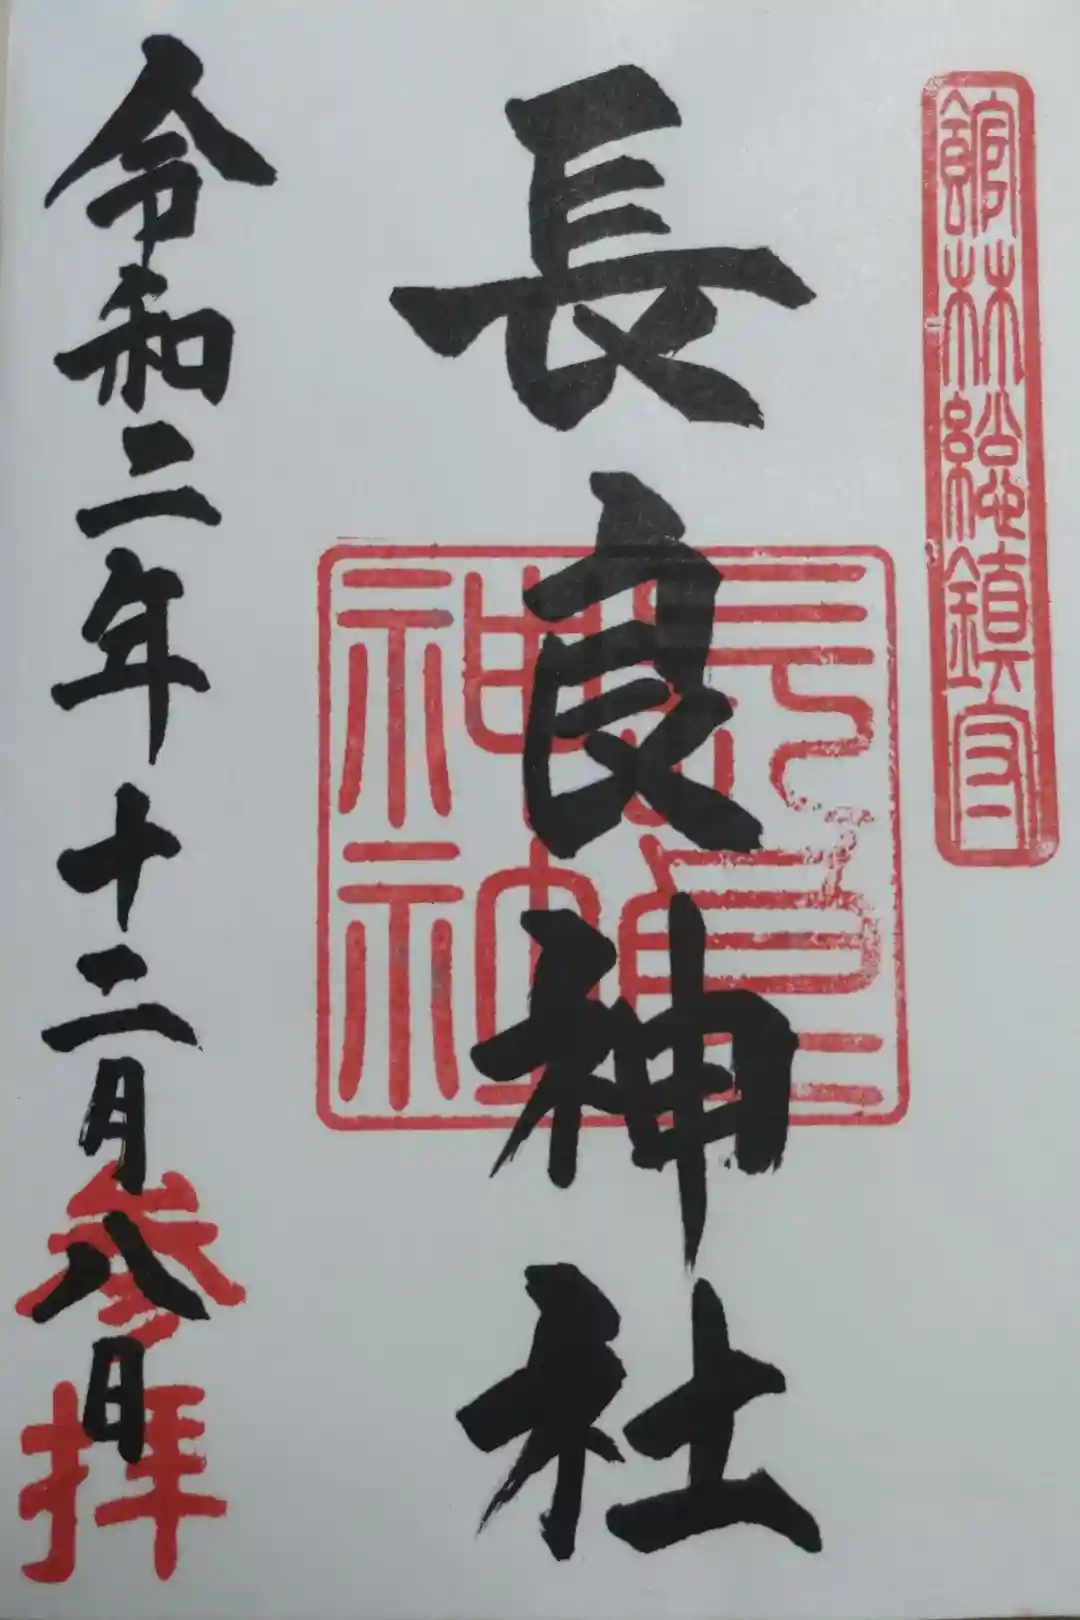 館林總鎮守
長良神社
長良神社
令和二年十二月八日
参拝